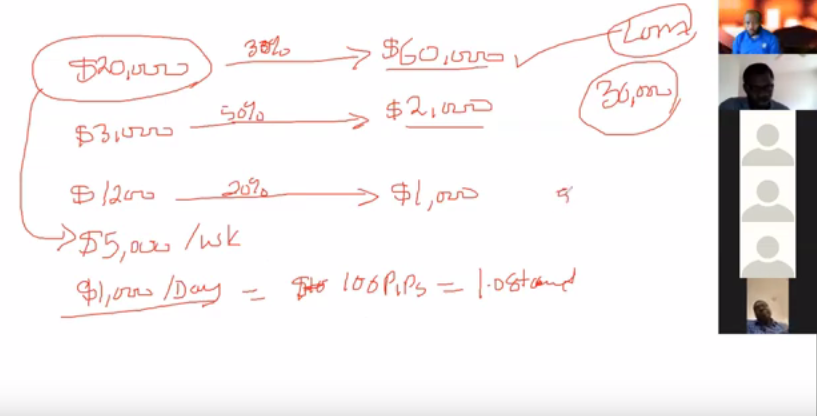 $20,000 30% $60,000 Loan
30,000
$3,000 50% $2,000
$1200 20% $1,000
$5,000 /wk
$1,000 /Day = 100 PiPs = 1.0